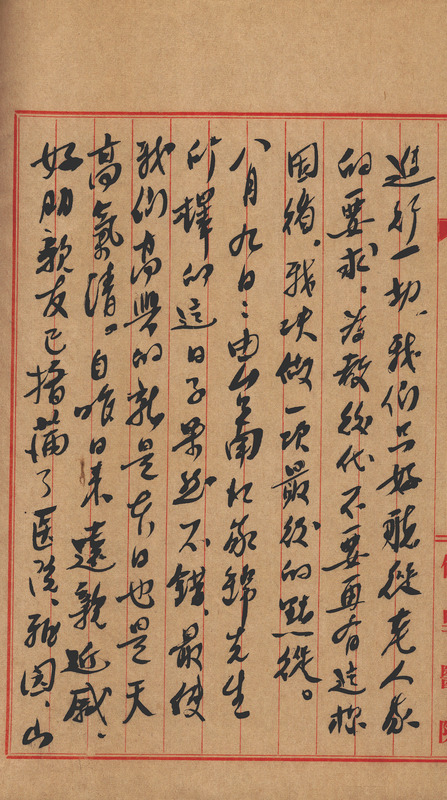 進行一切、我们只好聽從老人家
的要求。為教後代不要再有這樣
困擾。我决做一項最後的點從。
八月九日：由台南江家錦先生
所擇的這日子果然不錯、最使
我们高興的就是本日也是天
高氣清。自昨日来遠親近戚、
好朋親友已擠滿了医院、雅园、山
醫院